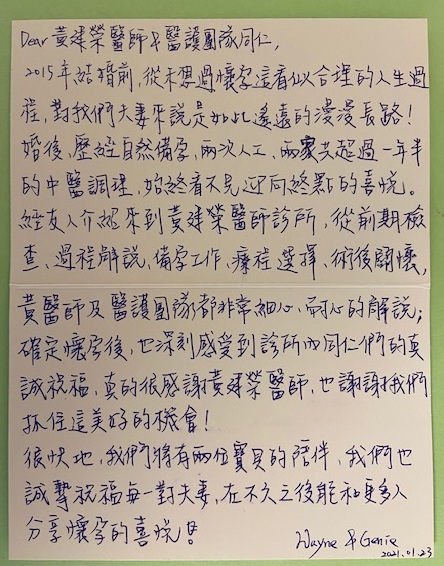 Dear 黃建榮醫師&醫護團隊同仁,
2015年結婚前,從未想過懷孕這看似合理的人生過
程,對我們夫妻來說是如此遙遠的漫漫長路!
婚後,歷經自然備孕,兩次人工,兩家共超過一年半
的中醫調理,始終看不見迎向終點的喜悅。
經友人介紹來到黃建榮醫師診所,從前期檢
查、過程解說、備孕工作、療程選擇、術後關懷,
黃醫師及醫護團隊都非常細心、耐心的解說;
確定懷孕後,也深刻感受到診所內同仁們的真
誠祝福,真的很感謝黃建榮醫師,也謝謝我們
抓住這美好的機會!
很快地,我們將有兩位寶貝的陪伴,我們也
誠摯祝福每一對夫妻,在不久之後能和更多人
分享懷孕的喜悅!
Wayne & Genie
2021.01.23